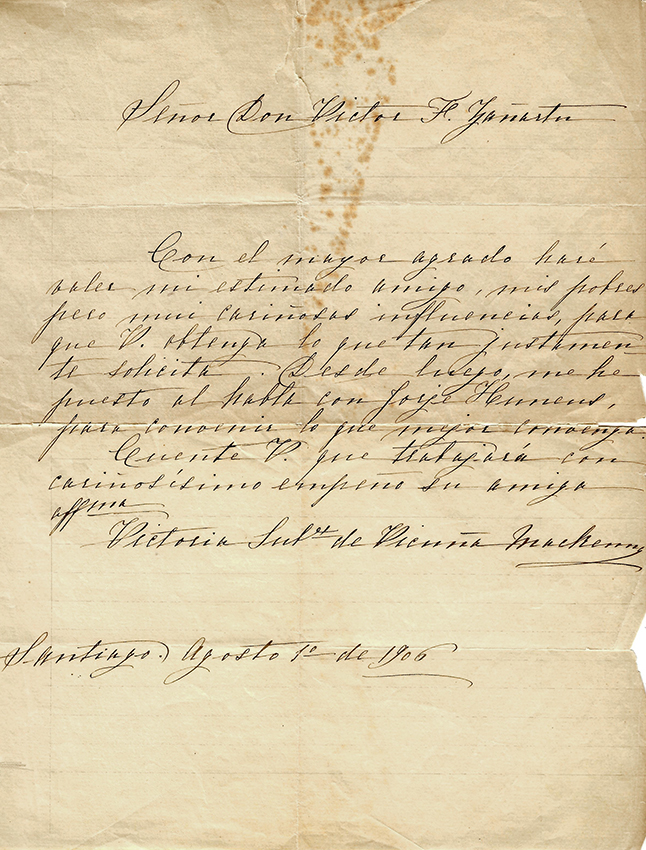 Señor Don Victor F. Zañartu
Con el mayor agrado haré
valer mi estimado amigo, mis pobres
pero mui cariñosas influencias, para
que V. obtenga lo que tan justamen-
te solicita. Desde luego, me he
puesto al habla con Jorje Huneus,
para convenir lo que mejor convenga.
Cuente V. que trabajará con
cariñosísimo empeño su amiga
affma
Victoria Sub.ux de Vicuña Mackenna
Santiago. Agosto 1º de 1906